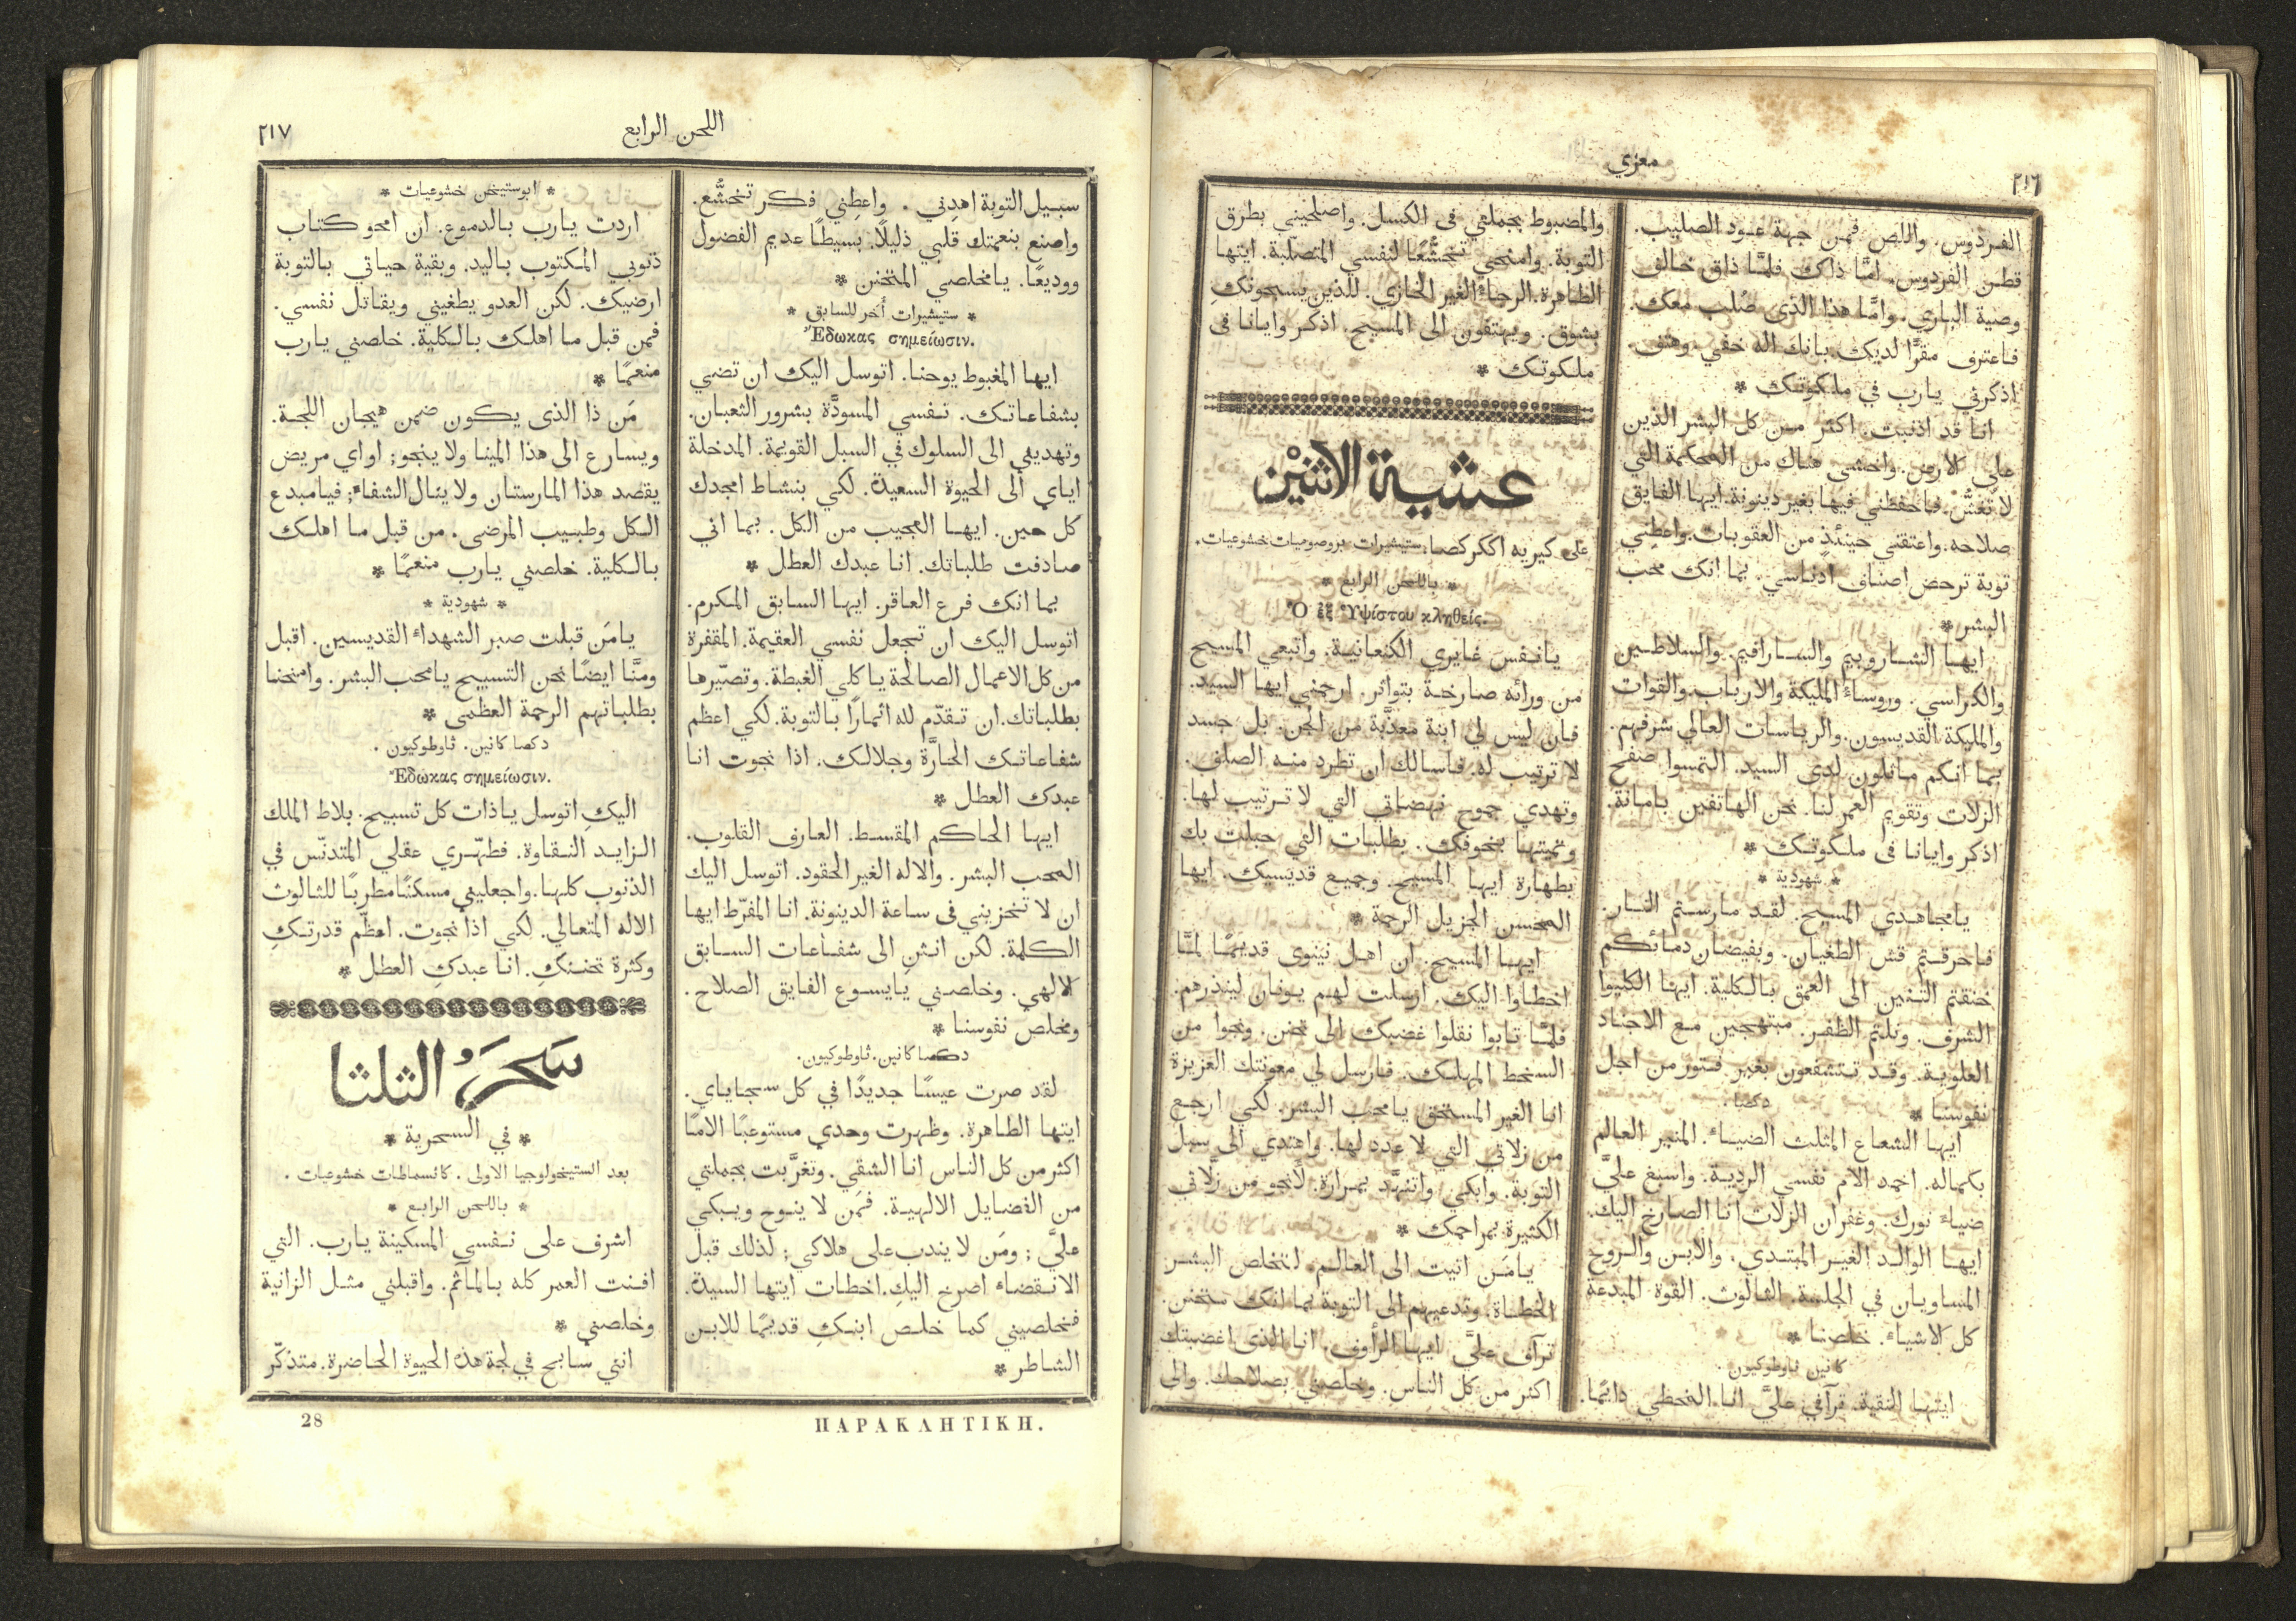 ٢١٦
معزي
الفردوس. واللص فمن جهة عود الصليب.
قطن الفردوس. امَّا ذاك فلمَّا ذاق خالف
وصية الباري. وامَّا هذا الذى صُلب معك.
فاعترف مقرًّا لديك بانك اله خفي. وهتف.
اذكرني يارب في ملكوتك *
انا قد اذنبت. اكثر من كل البشر الذين
على الارض. واخشى هناك من المحكمة التي
لا تُغشّ. فاحفظني فيها بغير دينونة. ايها الفايق
صلاحه. واعتقني حينئذٍ من العقوبات. واعطِني
توبة ترحض اصناف ادناسي. بما انك محب
البشر *
ايها الشاروبيم والسارافيم. والسلاطين
والكراسي. وروساء المليكة والارباب والقوات
والمليكة القديسون. والرياسات العالي شرفهم.
بما انكم ماثلون لدى السيد. التمسوا صفح
الزلات وتقويم العمر لنا. نحن الهاتفين بامانة.
اذكر وايانا فى ملكوتك *
* شهودية *
يامجاهدي المسيح. لقد مارستم النار.
فاحرقتم قش الطغيان. وبفيضان دمائكم
خنقتم التنين الى العمق بالكلية. ايها الكليوا
الشرف. ونلتم الظفر. مبتهجين مع الاجناد
العلوية. وقد تتشفعون بغير فتور من اجل
نفوسنا *
دكصا.
ايها الشعاع المثلث الضياء. المنير العالم
بكماله. اخمد الام نفسي الردية. واسبغ عليَّ
ضياء نورك. وغفران الزلات انا الصارخ اليك.
ايها الوالد الغير المبتدي. والابن والروح
المساويان في الجلسة. الثالوث. القوة المبدعة
كل الاشياء. خلصنا *
كانين ثاوطوكيون.
ايتها النقية. ترآفي عليَّ انا المخطي دايمًا.
والمضبوط بجملتي فى الكسل. واصلحيني بطرق
التوبة. وامنحي تخشُّعًا لنفسي المتصلبة. ايتها
الطاهرة. الرجاء الغير الخازي. للذين يسبحونكِ
بشوق. ويهتفون الى المسيح. اذكر وايانا فى
ملكوتك *
عشية الاثنين
على كيريه اككركصا. ستيشيرات بروصوميات خشوعيات.
* باللحن الرابع *
Ὁ ἐξ Ὑψίστου κληθείς.
يانفسَ غايري الكنعانية. واتبعي المسيح
من ورائه صارخة بتواتر. ارحمني ايها السيد.
فان ليس لي ابنة معذَّبة من الجن. بل جسد
لا ترتيب له. فاسالك ان تطرد منه الصلف.
وتهدي جموح نهضاتي التي لا ترتيب لها.
وتميتها بخوفك. بطلبات التي حبلت بك
بطهارة ايها المسيح. وجميع قديسيك. ايها
المحسن الجزيل الرحمة *
ايها المسيح. ان اهل نينوى قديمًا لمَّا
اخطاوا اليك. ارسلت لهم يونان لينذرهم.
فلمَّا تابوا نقلوا غضبك الى تحنن. ونجوا من
السخط المهلك. فارسل لي معونتك العزيزة
انا الغير المستحق يامحب البشر. لكي ارجع
من زلاتي التي لا عدد لها. واهتدي الى سبل
التوبة. وابكي واتنهَّد بمرارة. لانجو من زلاتي
الكثيرة بمراحمك *
يامَن اتيت الى العالم. لتخلص البشر
الخطاة. وتدعيهم الى التوبة بما انك متحنن.
ترآف عليَّ ايها الرأوف. انا الذى اغضبتك
اكثر من كل الناس. وخلصني بصلاحك. والى
اللحن الرابع
٢١٧
سبيل التوبة اهدِني. واعطِني فكر تخشُّع.
واصنع بنعمتك قلبي ذليلًا. بسيطًا عديم الفضول
ووديعًا. يامخلصي المتحنن *
* ستيشيرات أُخر للسابق *
Ἔδωκας σημείωσιν.
ايها المغبوط يوحنا. اتوسل اليك ان تضي
بشفاعاتك. نفسي المسودَّة بشرور الثعبان.
وتهديني الى السلوك في السبل القويمة. المدخلة
اياي الى الحيوة السعيدة. لكي بنشاط امجدك
كل حين. ايها العجيب من الكل. بما اني
صادفت طلباتك. انا عبدك العطل *
بما انك فرع العاقر. ايها السابق المكرم.
اتوسل اليك ان تجعل نفسي العقيمة. المقفرة
من كل الاعمال الصالحة يا كلي الغبطة. وتصيّرها
بطلباتك. ان تقدّم لله اثمارًا بالتوبة. لكي اعظم
شفاعاتك الحارَّة وجلالك. اذا نجوت انا
عبدك العطل *
ايها الحاكم المقسط. العارف القلوب.
المحب البشر. والاله الغير الحقود. اتوسل اليك
ان لا تخزيني فى ساعة الدينونة. انا المفرّط ايها
الكلمة. لكن انثنِ الى شفاعات السابق
الالهي. وخلصني يايسوع الفايق الصلاح.
ومخلص نفوسنا *
دكصا كانين. ثاوطوكيون.
لقد صرت عيسًا جديدًا في كل سجاياي.
ايتها الطاهرة. وظهرت وحدي مستوعبًا الامًا
اكثر من كل الناس انا الشقي. وتغرَّبت بجملتي
من الفضايل الالهية. فمَن لا ينوح ويبكي
عليَّ ; ومَن لا يندب على هلاكي ; لذلك قبل
الانقضاء اصرخ اليكِ. اخطات ايتها السيدة.
فخلصيني كما خلص ابنكِ قديمًا للابن
الشاطر *
* ابوستيخن خشوعيات *
اردت يارب بالدموع. ان امحو كتاب
ذنوبي المكتوب باليد. وبقية حياتي بالتوبة
ارضيك. لكن العدو يطغيني ويقاتل نفسي.
فمن قبل ما اهلك بالكلية. خلصني يارب
منعمًا *
مَن ذا الذى يكون ضمن هيجان اللجة.
ويسارع الى هذا المينا ولا ينجو ; او اي مريض
يقصد هذا المارستان ولا ينال الشفاء ; فيامبدع
الكل وطبيب المرضى. من قبل ما اهلك
بالكلية. خلصني يارب منعمًا *
* شهودية *
يامَن قبلت صبر الشهداء القديسين. اقبل
ومنَّا ايضًا نحن التسبيح يامحب البشر. وامنحنا
بطلباتهم الرحمة العظمى *
دكصا كانين. ثاوطوكيون.
Ἔδωκας σημείωσιν.
اليكِ اتوسل ياذات كل تسبيح. بلاط الملك
الزايد النقاوة. فطهّري عقلي المتدنّس في
الذنوب كلها. واجعليني مسكنًا مطربًا للثالوث
الاله المتعالي. لكي اذا نجوت. اعظّم قدرتكِ
وكثرة تحننكِ. انا عبدكِ العطل *
سَحَرُ الثلثا
* في السحرية *
بعد الستيخولوجيا الاولى. كاثسماطات خشوعيات.
* باللحن الرابع *
اشرف على نفسي المسكينة يارب. التي
افنت العمر كله بالمآثم. واقبلني مثل الزانية
وخلصني *
انني سابح في لجة هذه الحيوة الحاضرة. متذكّر
ΠΑΡΑΚΛΗΤΙΚΗ.
28